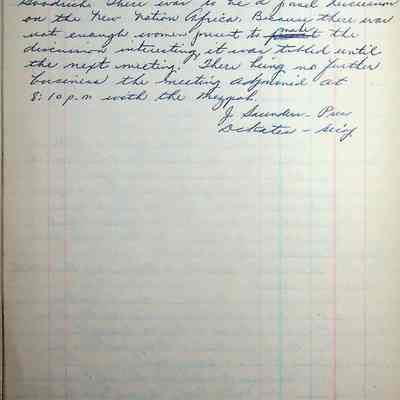 Goodrich. There was to be a panel discussion
on the New Nation Africa. Because there was
not enough women present to make the
discussion interesting, it was tabled until
the next meeting. There being no further
business the meeting adjourned at
8:10 p.m with the Mezpah.
J Saunders - Pres
- Sec'y